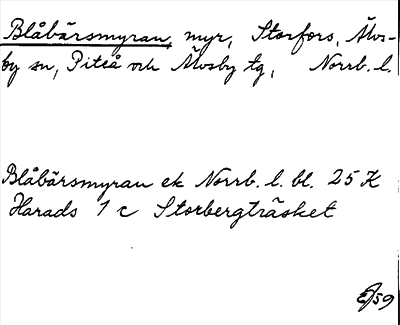 Blåbärsmyran, myr, Storfors, Älvs-
by sn, Piteå och Älvsby tg, Norrb. l.
Blåbärsmyran ek Norrb. l. bl. 25 K
Harads 1 c Storbergträsket
/59